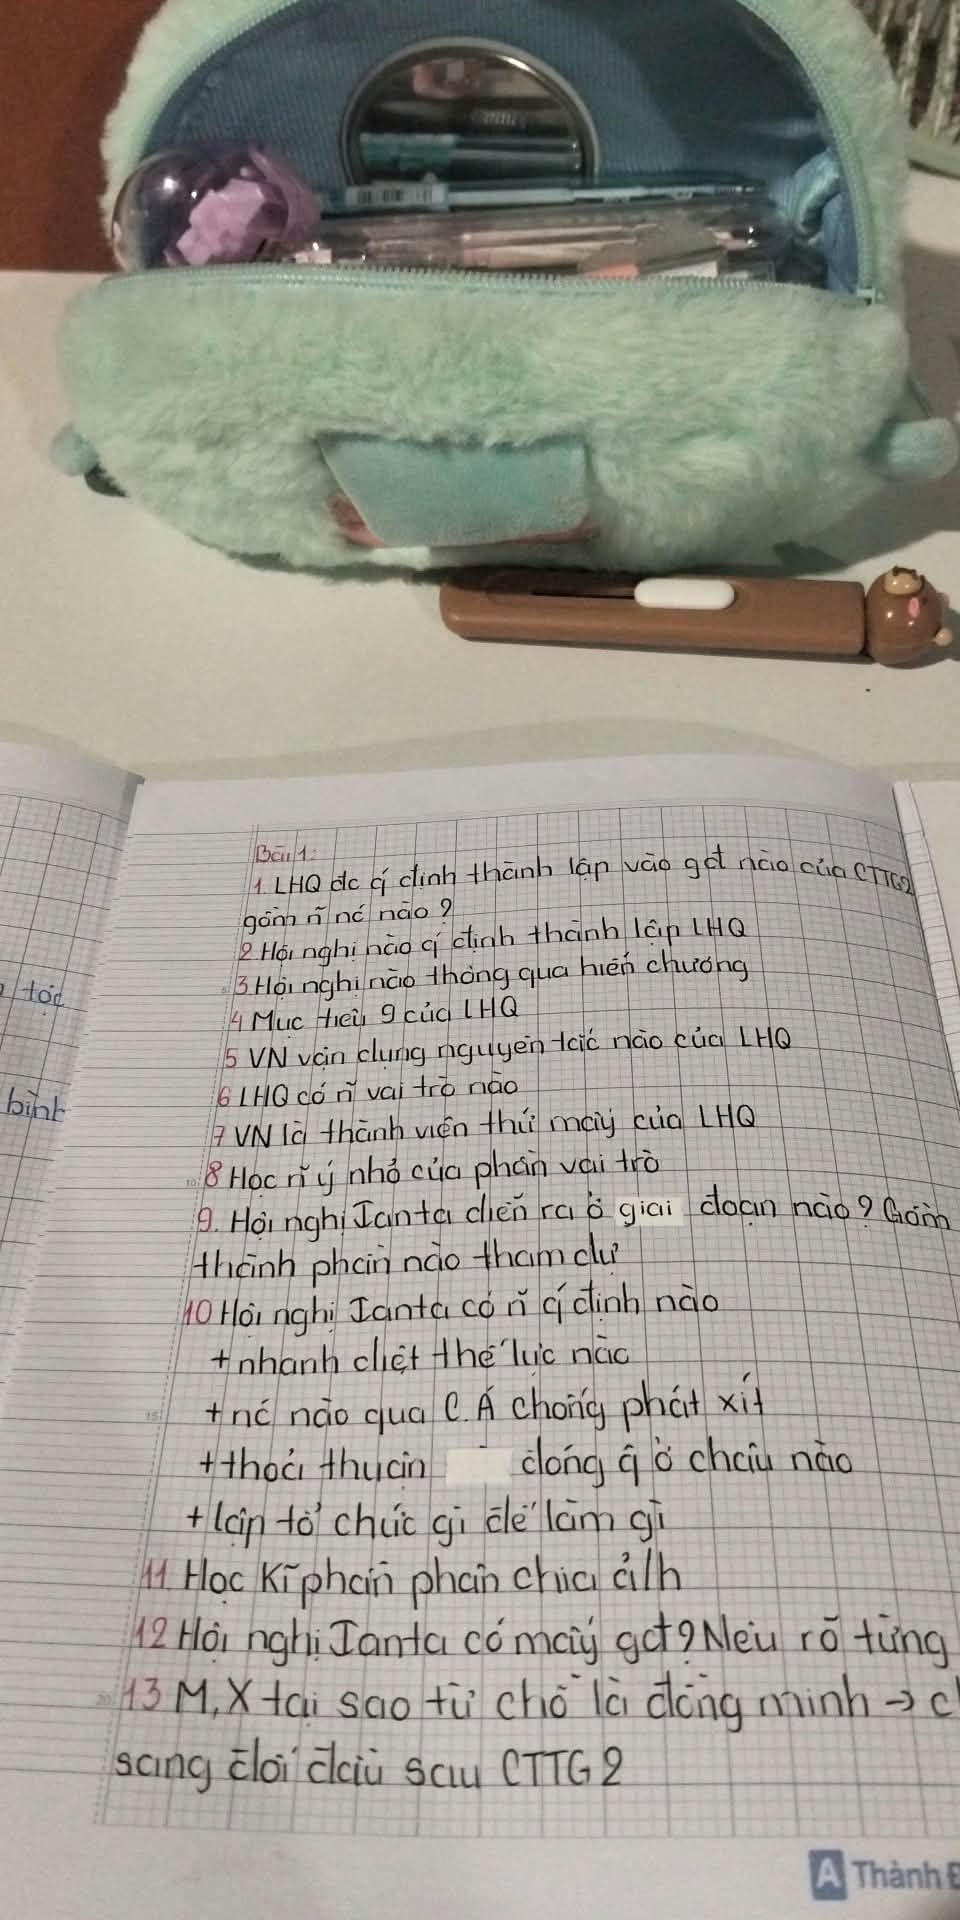 Bài 1:
1. LHQ đc q' định thành lập vào gđ nào của CTTG2
gồm n~ nc' nào?
2 Hội nghị nào q' định thành lập LHQ
3 Hội nghị nào thông qua hiến chương
4 Mục tiêu 9 của LHQ
5 VN vận dụng nguyên tắc nào của LHQ
6 LHQ có n~ vai trò nào
7 VN là thành viên thứ mấy của LHQ
8 Học n~ ý nhỏ của phần vai trò
9. Hội nghị Ianta diễn ra ở giai đoạn nào? Gồm
thành phần nào tham dự
10 Hội nghị Ianta có n~ q' định nào
+ nhanh diệt thế lực nào
+ nc' nào qua C.Á chống phát xít
+ thoả thuận đóng q ở châu nào
+ lập tổ chức gì để làm gì
11. Học kĩ phần phân chia ả/h
12 Hội nghị Ianta có mấy gđ? Nêu rõ từng
13 M, X tại sao từ chỗ là đồng minh → c
sang đối đầu sau CTTG2
tộc
bình
A Thành Đ